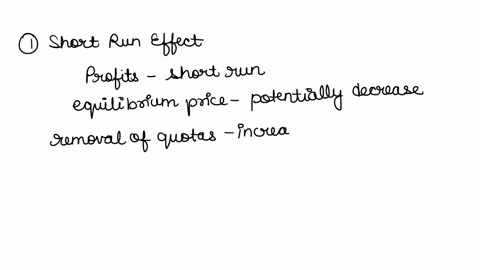 ① Short Run Effect
Profits - short run
equilibrium price - potentially decrease
removal of quotas - increa